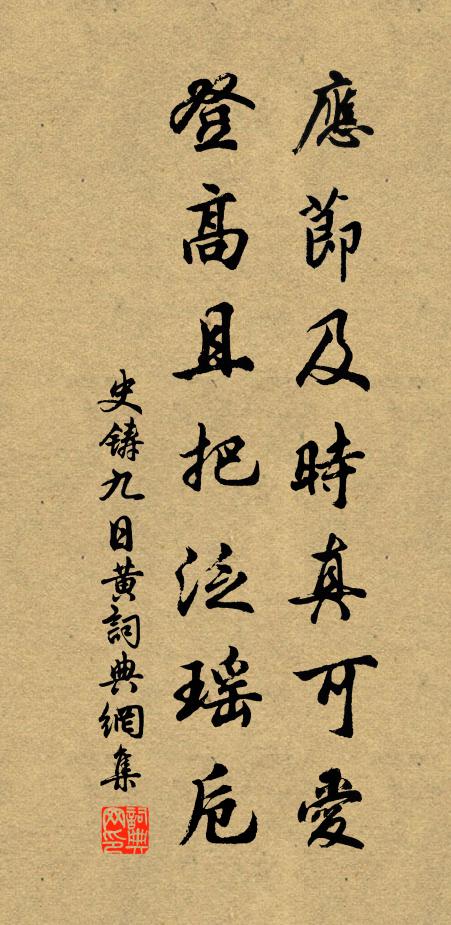 應節及時真可愛
登高且把泛瑤卮
史鑄九日黃詞典網集
詞典
网印